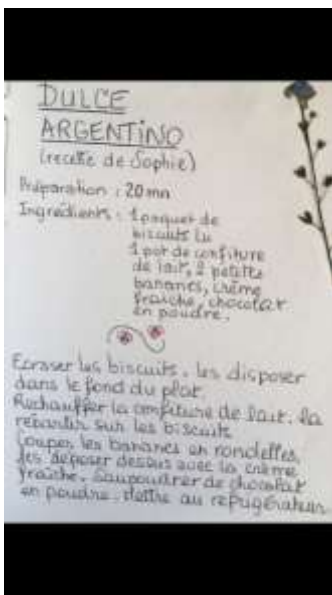 DULCE
ARGENTINO
(recette de Sophie)
Préparation : 20 mn
Ingrédients : 1 paquet de
biscuits Lu
1 pot de confiture
de lait, 2 petites
bananes, crème
fraîche, chocolat
en poudre.
Ecraser les biscuits. les disposer
dans le fond du plat.
Rechauffer la confiture de lait. la
répartir sur les biscuits
Couper les bananes en rondelles,
les déposer dessus avec la crème
fraîche. Saupoudrer de chocolat
en poudre. Mettre au réfrigérateur.